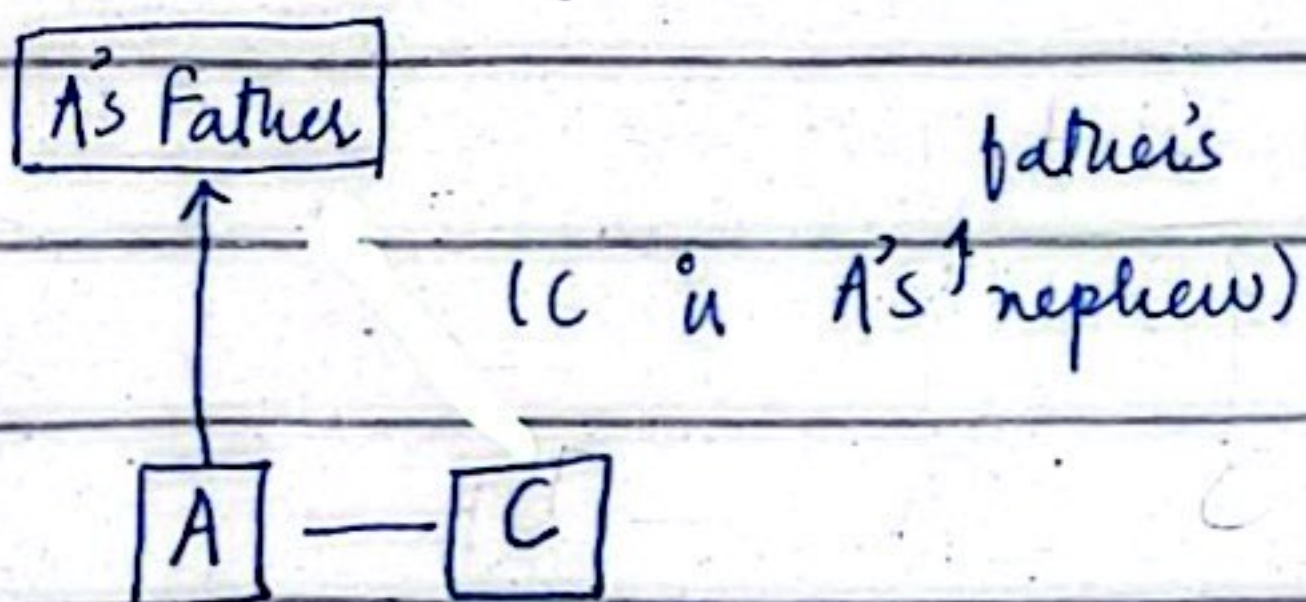 A's Father
father's
(C is A's ↑ nephew)
A — C